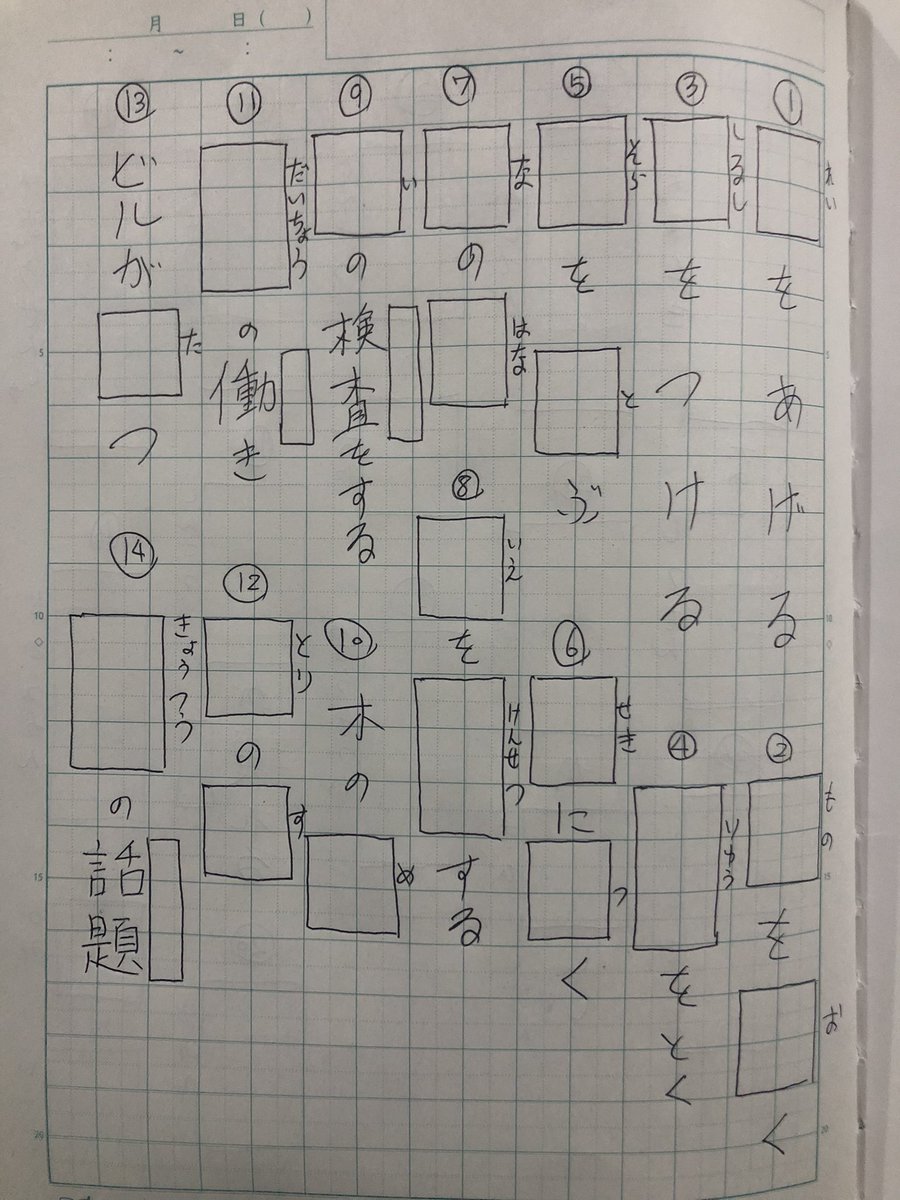 月 日 ( )
: ~ :
① れい をあげる
② もの を お く
③ しるし をつける
④ をとく
⑤ そら を と ぶ
⑥ せき に つ く
⑦ な の はな
⑧ いえ を けんせつ する
⑨ い の検査をする
⑩ 木の め
⑪ だいちょう の働き
⑫ とり の す
⑬ ビルが た つ
⑭ きょうつう の話題
5
10
15
20